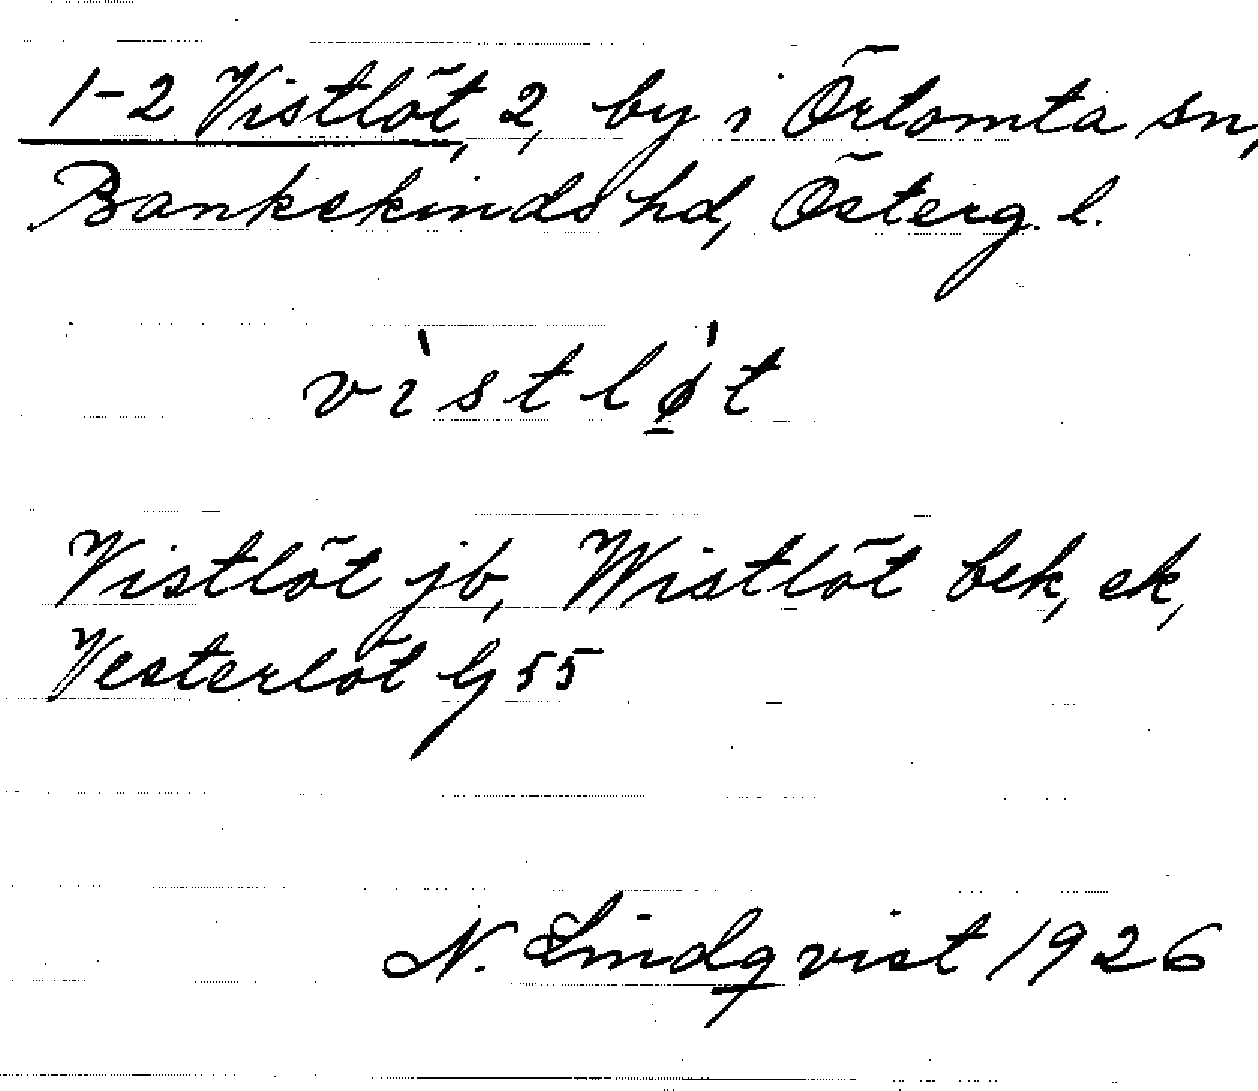 1-2 Vistlöt, 2, by i Örtomta sn,
Bankekinds hd, Österg. l.
vìstlǿt
Vistlöt jb, Wistlöt bek, ek,
Vesterlöt Lj 55
N. Lindqvist 1926